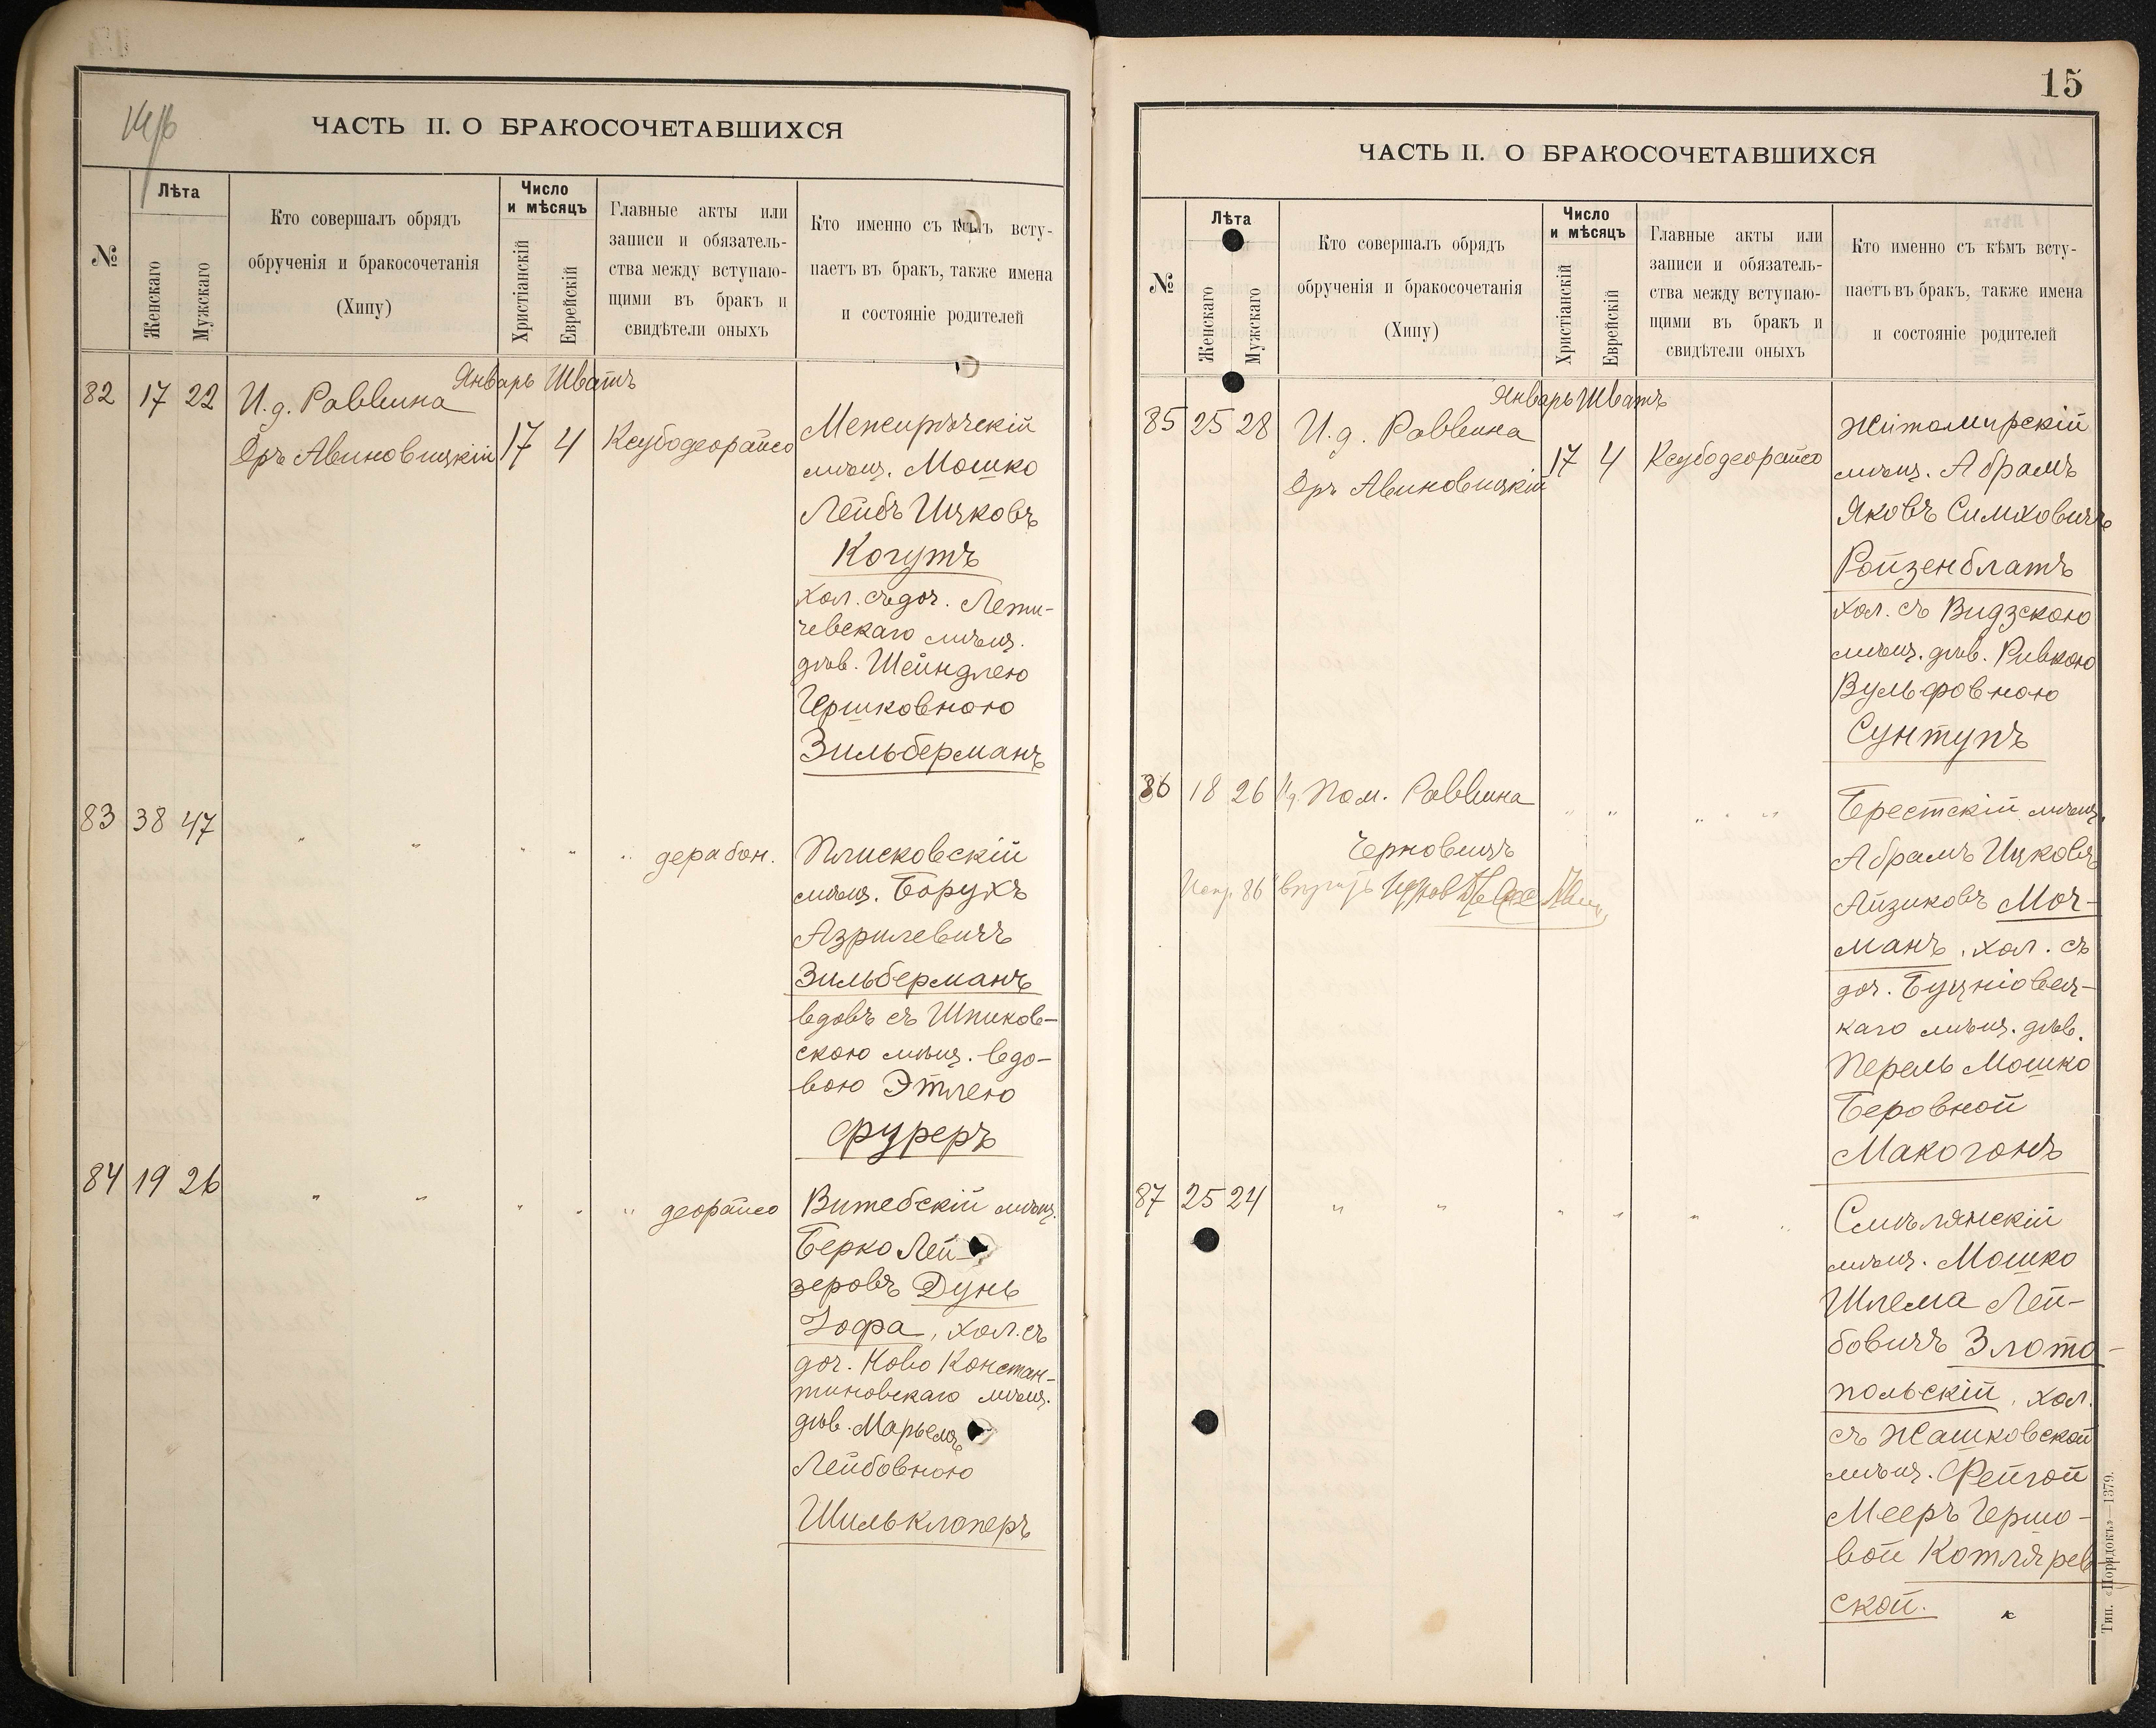 ЧАСТЬ II. О БРАКОСОЧЕТАВШИХСЯ
№
Лѣта
Женскаго
Мужскаго
Кто совершалъ обрядъ
обрученія и бракосочетанія
(Хипу)
Число
и мѣсяцъ
Христіанскій
Еврейскій
Главные акты или
записи и обязатель-
ства между вступаю-
щими въ бракъ и
свидѣтели оныхъ
Кто именно съ кѣмъ всту-
паетъ въ бракъ, также имена
и состояніе родителей
Январь Шватъ
82 17 22 И.д. Раввина
Дръ Авиновицкій 17 4 Ксубодеорайсо
Межирѣчскій
мѣщ. Мошко
Лейбъ Ицковъ
Когутъ
хол. съ доч. Лети-
чевскаго мѣщ.
дѣв. Шейндлею
Гершковною
Зильберманъ
83 38 47 " " " " " дерабон.
Плисковскій
мѣщ. Борухъ
Азрилевичъ
Зильберманъ
вдовъ съ Шпиков-
скою мѣщ. вдо-
вою Этлею
Фуреръ
84 19 26 " " " " " деорайсо
Витебскій мѣщ.
Берко Лей-
зеровъ Дунь
Іофа, хол. съ
доч. Ново Констан-
тиновскаго мѣщ.
дѣв. Марьемъ
Лейбовною
Шильклоперъ
15
ЧАСТЬ II. О БРАКОСОЧЕТАВШИХСЯ
№
Лѣта
Женскаго
Мужскаго
Кто совершалъ обрядъ
обрученія и бракосочетанія
(Хипу)
Число
и мѣсяцъ
Христіанскій
Еврейскій
Главные акты или
записи и обязатель-
ства между вступаю-
щими въ бракъ и
свидѣтели оныхъ
Кто именно съ кѣмъ всту-
паетъ въ бракъ, также имена
и состояніе родителей
Январь Шватъ
85 25 28 И.д. Раввина
Дръ Авиновицкій 17 4 Ксубодеорайсо
Житомирскій
мѣщ. Абрамъ
Яковъ Симховичъ
Ройзенблатъ
хол. съ Видзскою
мѣщ. дѣв. Ривкою
Вульфовною
Сунтупъ
86 18 26 И.д. Пом. Раввина " " " " "
Черновичъ
86
Брестскій мѣщ.
Абрамъ Ицковъ
Айзиковъ Моч-
манъ, хол. съ
доч. Буцніовец-
каго мѣщ. дѣв.
Перель Мошко
Беровной
Макогонъ
87 25 24 " " " " " "
Смѣлянскій
мѣщ. Мошко
Шлема Лей-
бовичъ Злото-
польскій, хол.
съ Жашковской
мѣщ. Фейгой
Мееръ Герше-
вой Котлярев-
ской.
Тип. «Порядокъ»—1379.